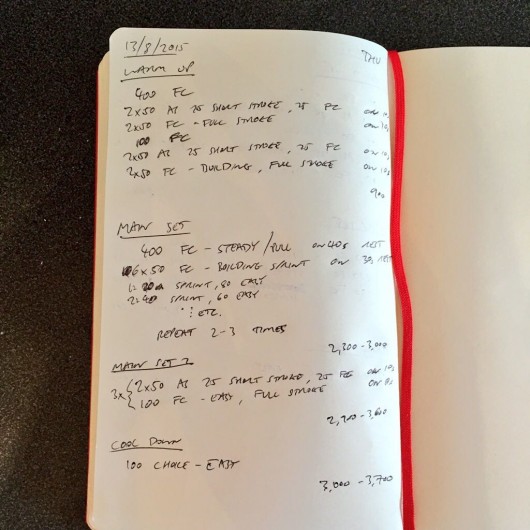 13/8/2015 THU
WARM UP
400 FC
2x50 AS 25 SHORT STROKE, 25 FC ON 10s
2x50 FC - FULL STROKE ON 10s
100 FC
2x50 AS 25 SHORT STROKE, 25 FC ON 10s
2x50 FC - BUILDING, FULL STROKE ON 10s
900
MAIN SET
400 FC - STEADY/PULL ON 40s REST
6x50 FC - BUILDING SPRINT ON 30s REST
1: 20 SPRINT, 80 EASY
2: 40 SPRINT, 60 EASY
⋮ ETC.
REPEAT 2-3 TIMES
2,300-3,000
MAIN SET 2
3x { 2x50 AS 25 SHORT STROKE, 25 FC ON 10s
100 FC - EASY, FULL STROKE ON
2,900-3,600
COOL DOWN
100 CHOICE - EASY
3,000-3,700